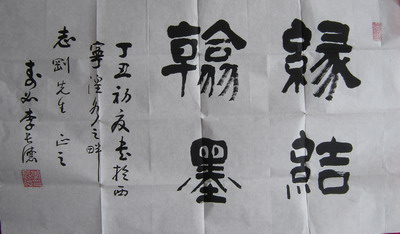 緣結
翰墨
丁丑初夏書於西
寧湟水之畔
志劉先生正之
李